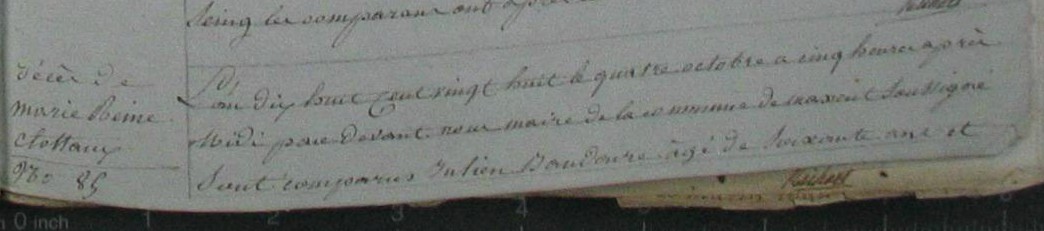 Seing les comparans ont après
décès de
marie Reine
N° 85
L'an dix huit Cent vingt huit le quatre octobre a cinq heures après
Midi par Devant nous maire de la commune de maxent Soussigné
Sont comparus Julien Baudoure âgé de Soixante ans et
0 inch 1 2 3 4